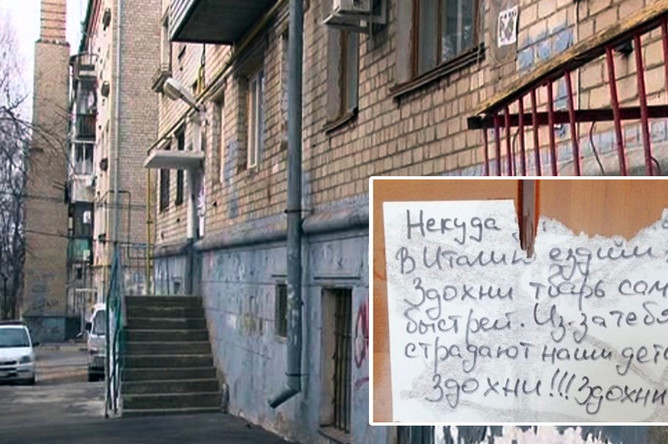 Некуда
В Италии ездили
Здохни тварь сам
быстрей. Из-за тебя
страдают наши дет
Здохни!!! Здохни